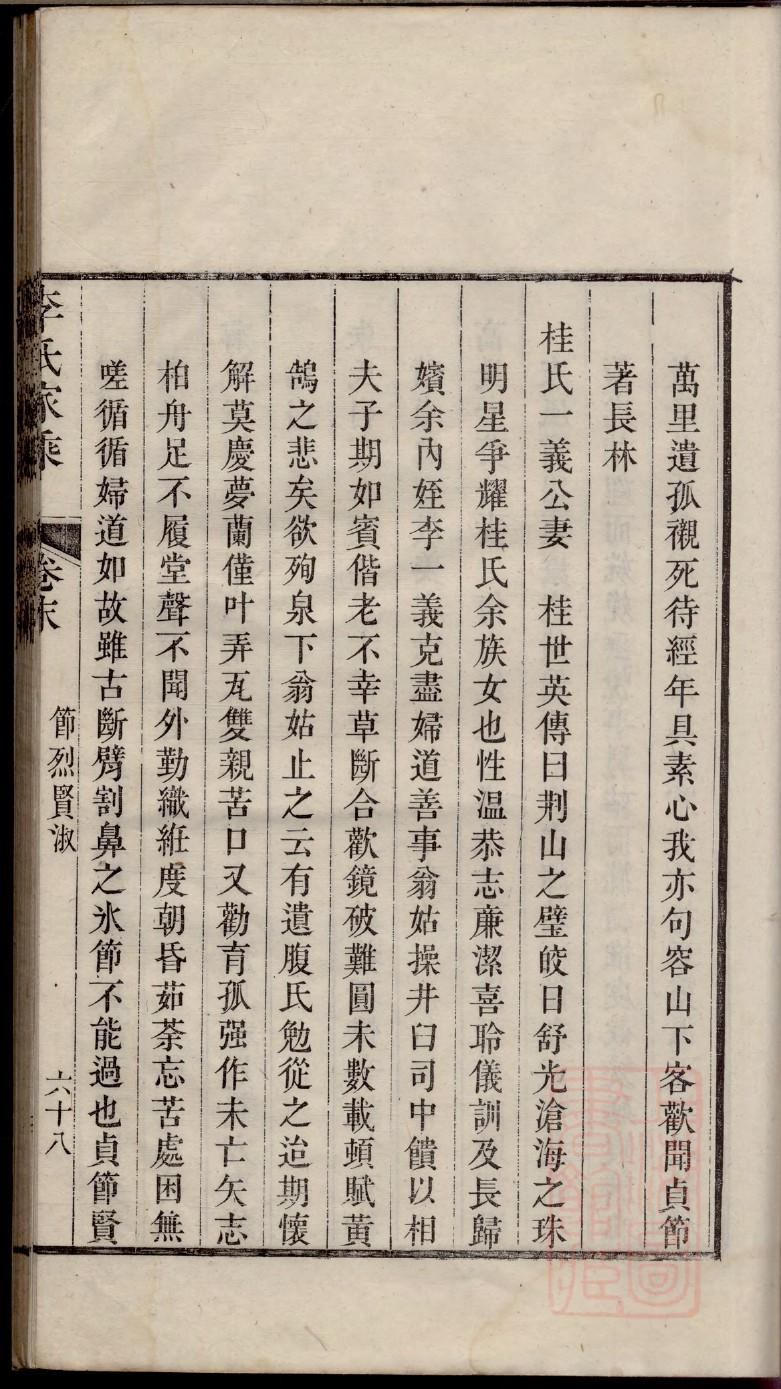 萬里遺孤襯死待經年具素心我亦句容山下客歡聞貞節
著長林
桂氏一義公妻　桂世英傳曰荆山之璧皎日舒光滄海之珠
明星爭耀桂氏余族女也性溫恭志廉潔喜聆儀訓及長歸
嬪余內姪李一義克盡婦道善事翁姑操井臼司中饋以相
夫子期如賓偕老不幸草斷合歡鏡破難圓未數載頓賦黃
鵠之悲矣欲殉泉下翁姑止之云有遺腹氏勉從之迨期懷
解莫慶夢蘭僅叶弄瓦雙親苦口又勸育孤强作未亡矢志
柏舟足不履堂聲不聞外勤織絍度朝昏茹荼忘苦處困無
嗟循循婦道如故雖古斷臂割鼻之氷節不能過也貞節賢
李氏家乘　卷末　節烈賢淑　六十八